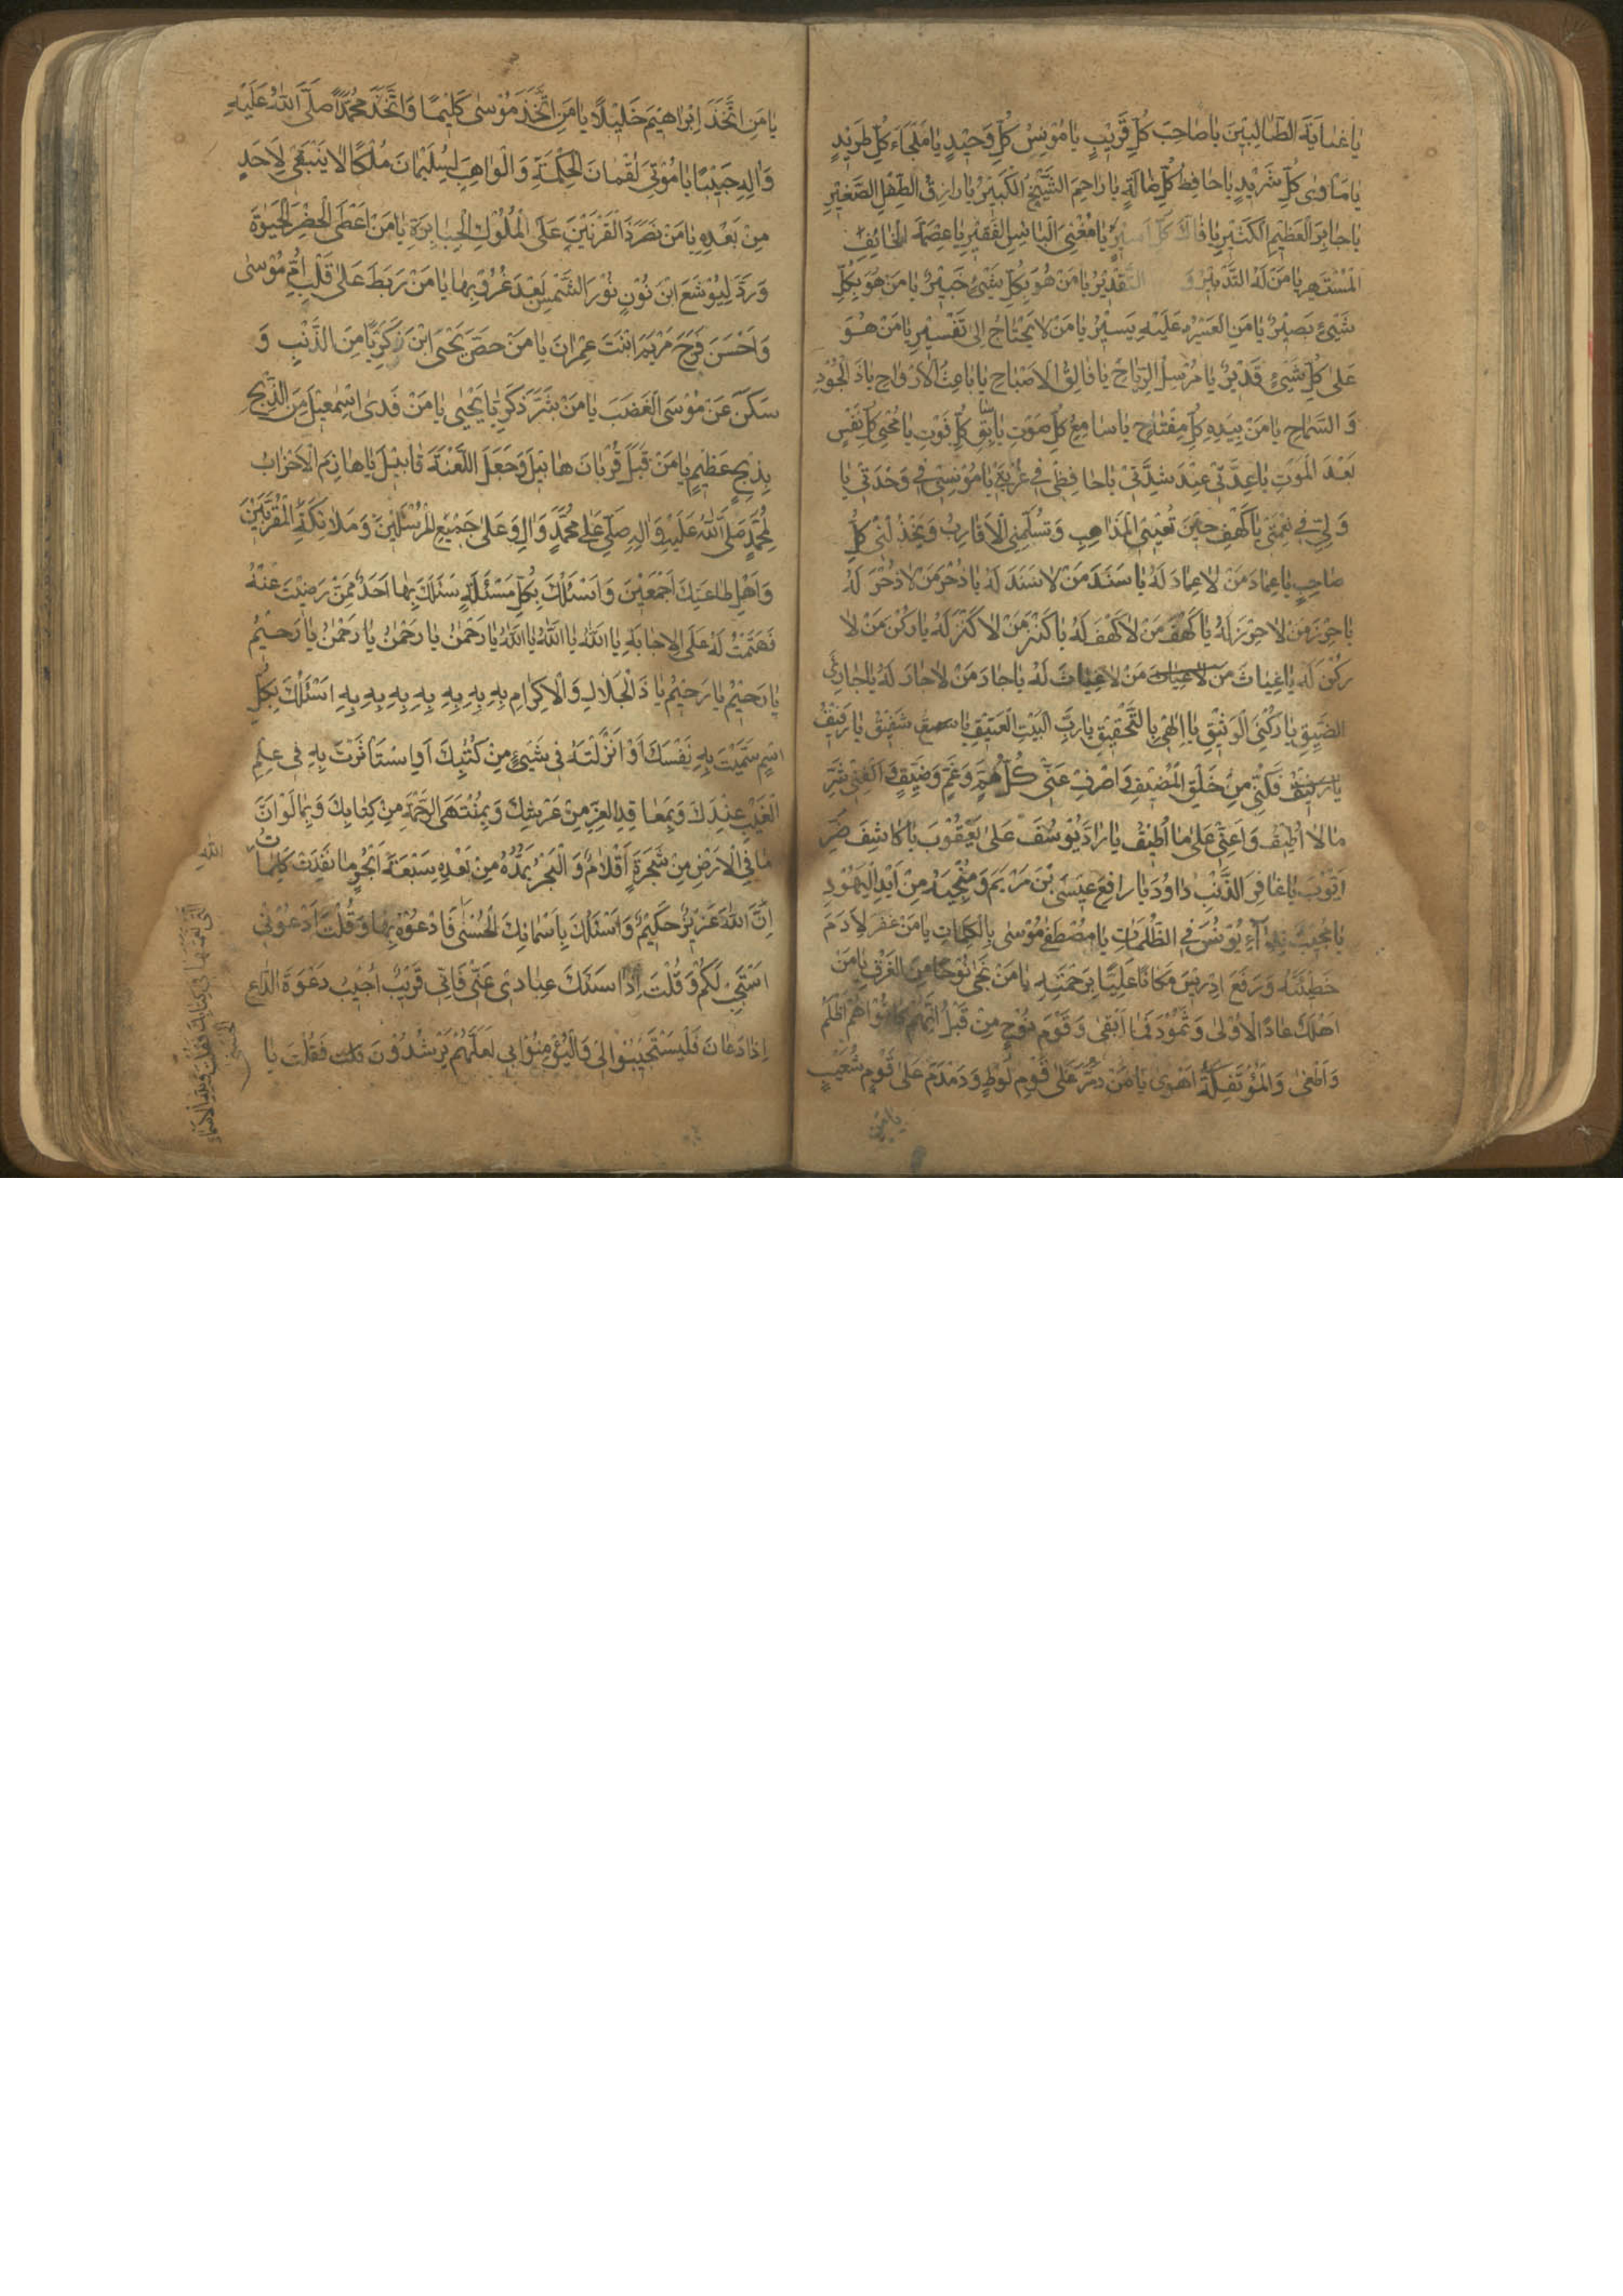 يا غاية الطالبين يا صاحب كل قريب يا مونس كل وحيد يا ملجاء كل طريد
يا ماوى كل شريد يا حافظ كل ضالة يا راحم الشيخ الكبير يا رازق الطفل الصغير
يا جابر العظيم الكثير يا فاك كل اسير يا مغنى البائس الفقير يا عصمة الخائف
المستجير يا من له التدبير و التقدير يا من هو بكل شيئ خبير يا من هو بكل
شيئ بصير يا من العسر عليه يسير يا من لا يحتاج الى تفسير يا من هو
على كل شيئ قدير يا مرسل الرياح يا فالق الاصباح يا باعث الارواح يا ذا الجود
و السماح يا من بيده كل مفتاح يا سامع كل صوت يا سابق كل فوت يا محيى كل نفس
بعد الموت يا عدتى عند شدتى يا حافظى فى غربتى يا مونسى فى وحدتى يا
ولى فى نعمتى يا كهفى حين تعيينى المذاهب و تسلمنى الاقارب و يخذلنى كل
صاحب يا عماد من لا عماد له يا سند من لا سند له يا ذخر من لا ذخر له
يا حرز من لا حرز له يا كهف من لا كهف له يا كنز من لا كنز له يا ركن من لا
ركن له يا غياث من لا غياث له يا جار من لا جار له يا جارى
الضيق يا ركنى الوثيق يا الهى بالتحقيق يا رب البيت العتيق يا شفيق يا رفيق
فكنى من خلق المضيق و اصرف عنى كل هم و غم و ضيق و اكفنى شر
ما لا اطيق و اعنى على ما اطيق يا راد يوسف على يعقوب يا كاشف ضر
ايوب يا غافر الذنب داود يا رافع عيسى بن مريم و منجيه من ايد اليهود
يا مجيب نداء يونس فى الظلمات يا مصطفى موسى بالكلمات يا من غفر لادم
خطيئته و رفع ادريس مكانا عليا برحمته يا من نجى نوحا من الغرق يا من
اهلك عادا الاولى و ثمود فما ابقى و قوم نوح من قبل انهم كانوا هم اظلم
و اطغى و المؤتفكة اهوى يا من دمر على قوم لوط و دمدم على قوم شعيب
يا من
يا من اتخذ ابراهيم خليلا يا من اتخذ موسى كليما و اتخذ محمدا صلى الله عليه
و اله حبيبا يا موتى لقمان الحكمة و الواهب لسليمان ملكا لا ينبغى لاحد
من بعده يا من نصر ذا القرنين على الملوك الجبابرة يا من اعطى الخضر الحيوة
و رد ليوشع ابن نون نور الشمس بعد غروبها يا من ربط على قلب ام موسى
و احسن فرج مريم ابنت عمران يا من حصن يحيى ابن زكريا من الذنب و
سكن عن موسى الغضب يا من بشر زكريا بيحيى يا من فدى اسمعيل من الذبح
بذبح عظيم يا من قبل قربان هابيل و جعل اللعنة قابيل يا هازم الاحزاب
لمحمد صلى الله عليه و اله صلى على محمد و ال و على جميع المرسلين و ملائكة المقربين
و اهل طاعتك اجمعين و اسئلك بكل مسئلة سئلك بها احد ممن رضيت عنه
فحتمت له على الاجابة يا الله يا الله يا الله يا رحمن يا رحمن يا رحمن يا رحيم
يا رحيم يا رحيم يا ذا الجلال و الاكرام به به به به به به به اسئلك بكل
اسم سميت به نفسك او انزلته فى شيئ من كتبك او استاثرت به فى علم
الغيب عندك و بمعاقد العز من عرشك و بمنتهى الرحمة من كتابك و بما لو ان
ما فى الارض من شجرة اقلام و البحر يمده من بعده سبعة ابحر ما نفدت كلمات
الله
ان الله عزيز حكيم و اسئلك باسمائك الحسنى فادعوه بها و قلت ادعونى
استجب لكم و قلت اذا سئلك عبادى عنى فانى قريب اجيب دعوة الداع
اذا دعان فليستجيبوا لى و اليؤمنوا بى لعلهم يرشدون و قلت يا
التى نعتها فى كتابك فقلت و لله الاسماء
الحسنى